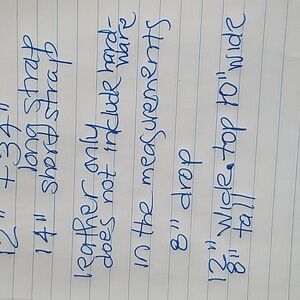 12" + 34"
long strap
14" short strap
leather only
does not include hard-
ware
in the measurements
8" drop
12" wide top 10" wide
8" tall